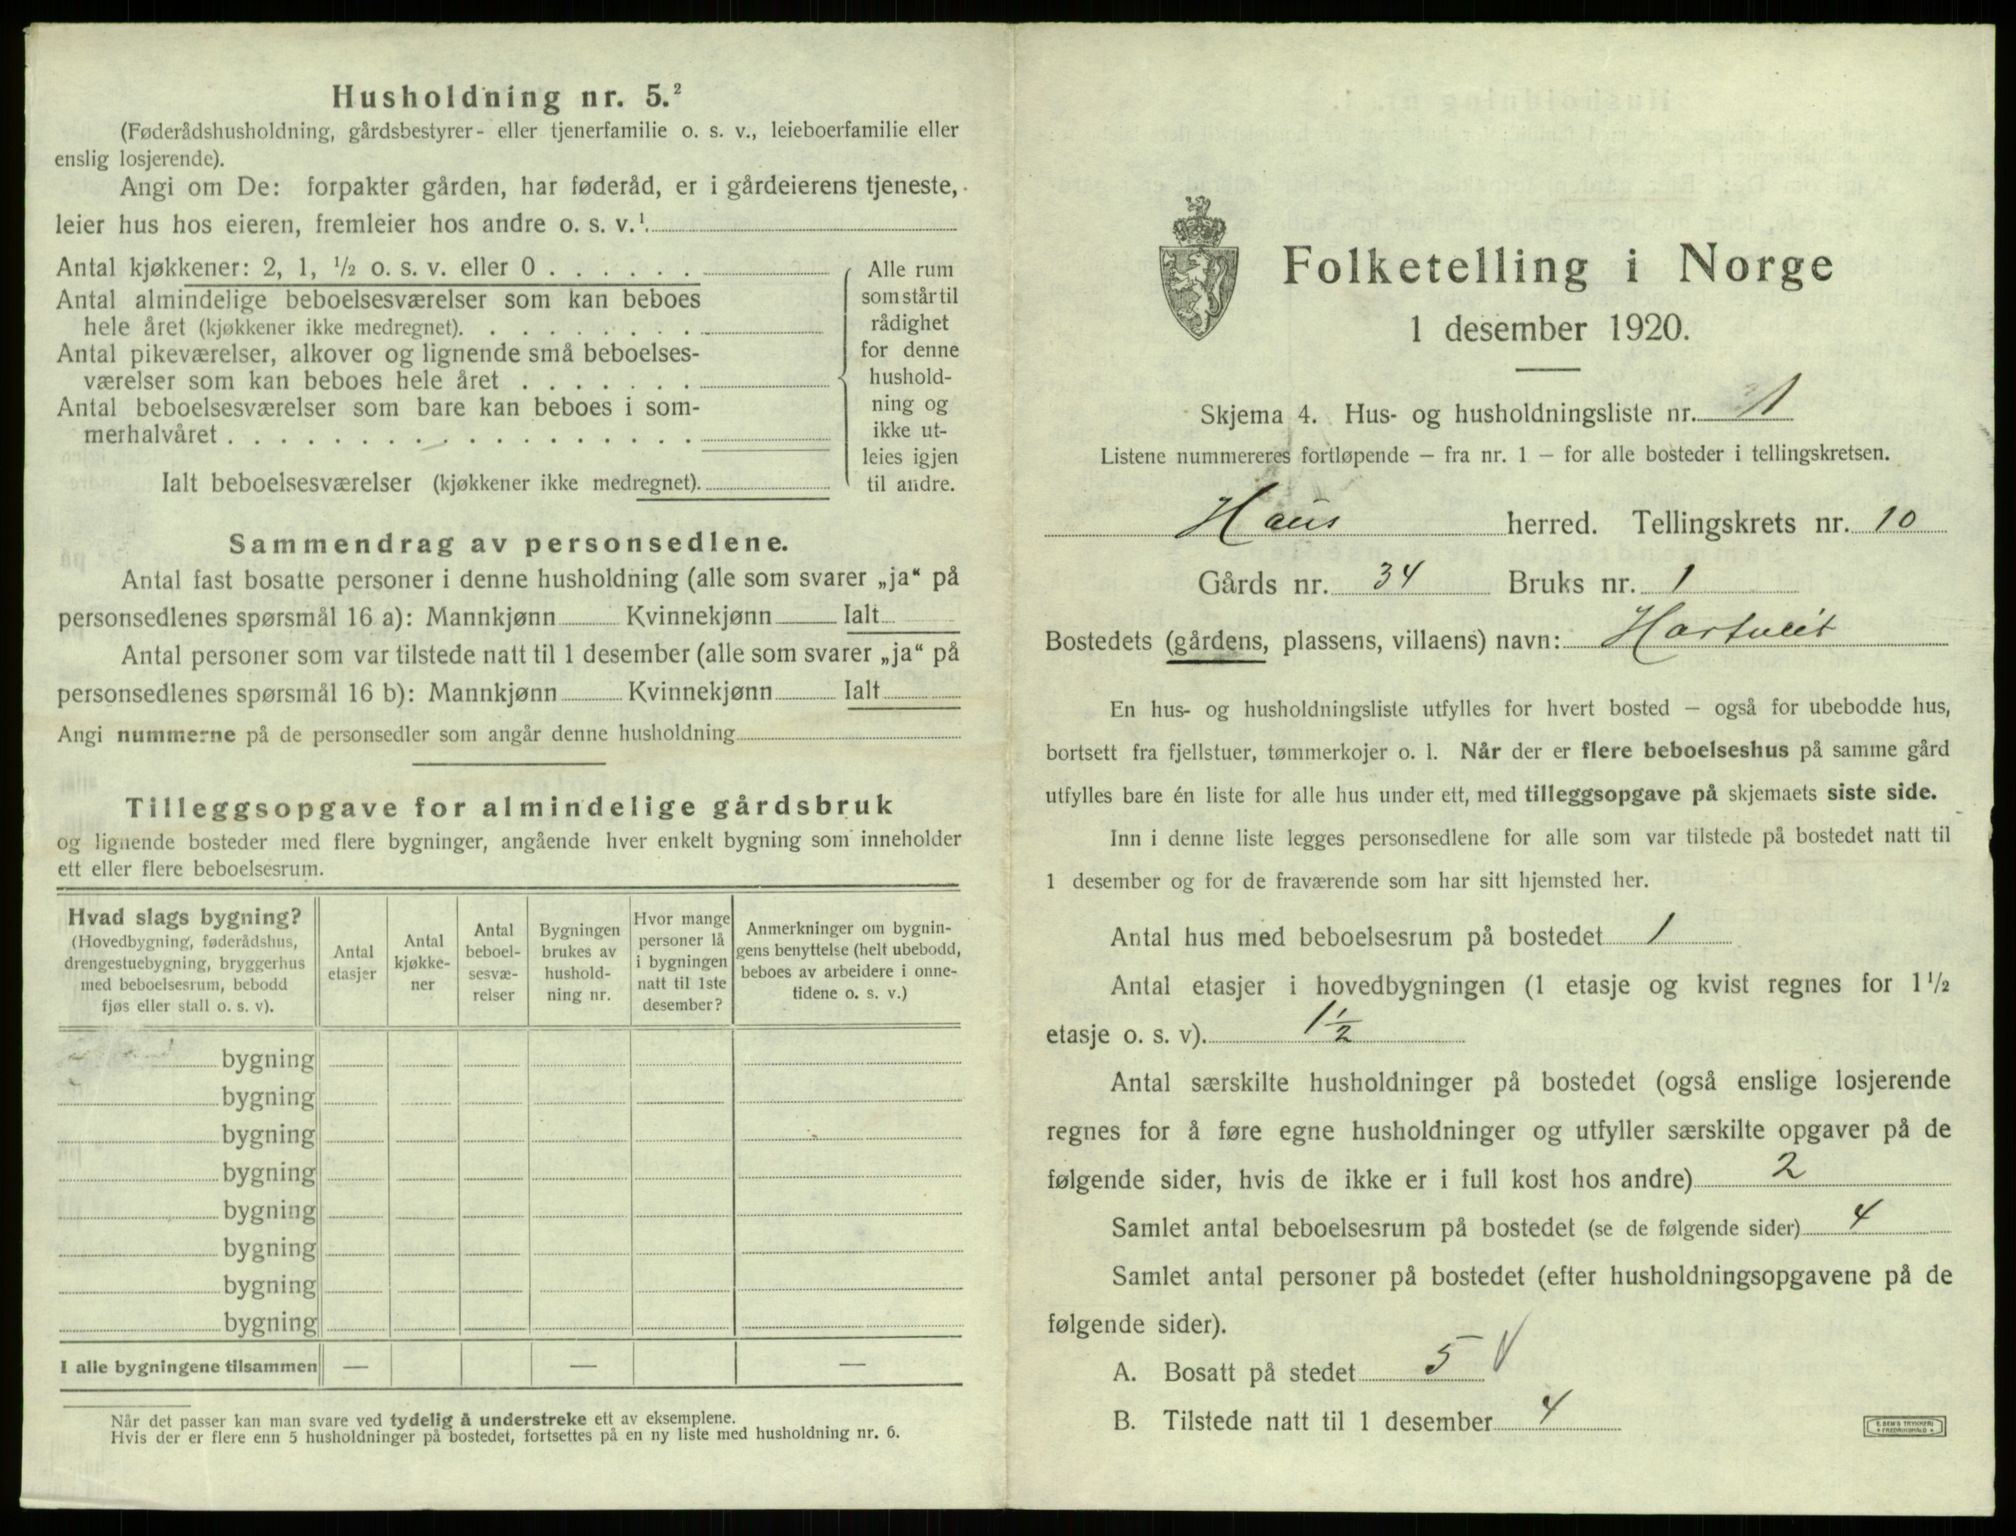 Husholdning nr. 5.²
(Føderådshusholdning, gårdsbestyrer- eller tjenerfamilie o. s. v., leieboerfamilie eller
enslig losjerende).
Angi om De: forpakter gården, har føderåd, er i gårdeierens tjeneste,
leier hus hos eieren, fremleier hos andre o. s. v.¹
Antal kjøkkener: 2, 1, ½ o. s. v. eller 0 . . . . . .
Antal almindelige beboelsesværelser som kan beboes
hele året (kjøkkener ikke medregnet). . . . . . . . .
Antal pikeværelser, alkover og lignende små beboelses-
værelser som kan beboes hele året . . . . . . .
Antal beboelsesværelser som bare kan beboes i som-
merhalvåret . . . . . . . . . . . . . . . . . .
Ialt beboelsesværelser (kjøkkener ikke medregnet).
Alle rum
som står til
rådighet
for denne
hushold-
ning og
ikke ut-
leies igjen
til andre.
Sammendrag av personsedlene.
Antal fast bosatte personer i denne husholdning (alle som svarer „ja“ på
personsedlenes spørsmål 16 a): Mannkjønn Kvinnekjønn Ialt
Antal personer som var tilstede natt til 1 desember (alle som svarer „ja“ på
personsedlenes spørsmål 16 b): Mannkjønn Kvinnekjønn Ialt
Angi nummerne på de personsedler som angår denne husholdning
Tilleggsopgave for almindelige gårdsbruk
og lignende bosteder med flere bygninger, angående hver enkelt bygning som inneholder
ett eller flere beboelsesrum.
Hvad slags bygning?
(Hovedbygning, føderådshus,
drengestuebygning, bryggerhus
med beboelsesrum, bebodd
fjøs eller stall o. s. v).
Antal
etasjer
Antal
kjøkke-
ner
Antal
beboel-
sesvæ-
relser
Bygningen
brukes av
hushold-
ning nr.
Hvor mange
personer lå
i bygningen
natt til 1ste
desember?
Anmerkninger om bygnin-
gens benyttelse (helt ubebodd,
beboes av arbeidere i onne-
tidene o. s. v.)
bygning
bygning
bygning
bygning
bygning
bygning
bygning
bygning
I alle bygningene tilsammen — — —
Når det passer kan man svare ved tydelig å understreke ett av eksemplene.
Hvis der er flere enn 5 husholdninger på bostedet, fortsettes på en ny liste med husholdning nr. 6.
Folketelling i Norge
1 desember 1920.
Skjema 4. Hus- og husholdningsliste nr. 1
Listene nummereres fortløpende – fra nr. 1 – for alle bosteder i tellingskretsen.
Haus herred. Tellingskrets nr. 10
Gårds nr. 34 Bruks nr. 1
Bostedets (gårdens, plassens, villaens) navn: Hartveit
En hus- og husholdningsliste utfylles for hvert bosted – også for ubebodde hus,
bortsett fra fjellstuer, tømmerkojer o. l. Når der er flere beboelseshus på samme gård
utfylles bare én liste for alle hus under ett, med tilleggsopgave på skjemaets siste side.
Inn i denne liste legges personsedlene for alle som var tilstede på bostedet natt til
1 desember og for de fraværende som har sitt hjemsted her.
Antal hus med beboelsesrum på bostedet 1
Antal etasjer i hovedbygningen (1 etasje og kvist regnes for 1½
etasje o. s. v). 1½
Antal særskilte husholdninger på bostedet (også enslige losjerende
regnes for å føre egne husholdninger og utfyller særskilte opgaver på de
følgende sider, hvis de ikke er i full kost hos andre) 2
Samlet antal beboelsesrum på bostedet (se de følgende sider) 4
Samlet antal personer på bostedet (efter husholdningsopgavene på de
følgende sider).
A. Bosatt på stedet 5 V
B. Tilstede natt til 1 desember 4
E. SEM'S TRYKKERI
FREDRIKSHALD